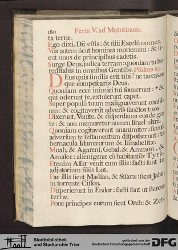 180 Feria V. ad Matutinum.
ta terræ.
Ego dixi: Dii estis: & filii Excelsi omnes.
Vos autem sicut homines moriemini: & si-
cut unus de principibus cadetis.
Surge Deus, judica terram: quoniam tu hæ-
reditabis in omnibus Gentibus.
Deus quis similis erit tibi? ne taceas:
neque compescaris Deus.
Quoniam ecce inimici tui sonuerunt: &
qui oderunt te, extulerunt caput.
Super populum tuum malignaverunt consili-
um: & cogitaverunt adversus Sanctos tuos.
Dixerunt: Venite, & disperdamus eos de gen-
te: & non memoretur nomen Israel ultra.
Quoniam cogitaverunt unanimiter: simul
adversum te testamentum disposuerunt:
Tabernacula Idumæorum & Ismahelitæ:
Moab, & Agareni, Gebal, & Ammon: &
Amalec: alienigenæ cum habitantibus Tyrum.
Etenim Assur venit cum illis: facti sunt in
adjutorium filiis Lot.
Fac illis sicut Madian, & Sisaræ: sicut Jabin
in torrente Cisson.
Disperierunt in Endor: facti sunt ut stercus
terræ.
Pone principes eorum sicut Oreb: & Zeb,
Stadtbibliothek
und Stadtarchiv Trier
gefördert von der
DFG